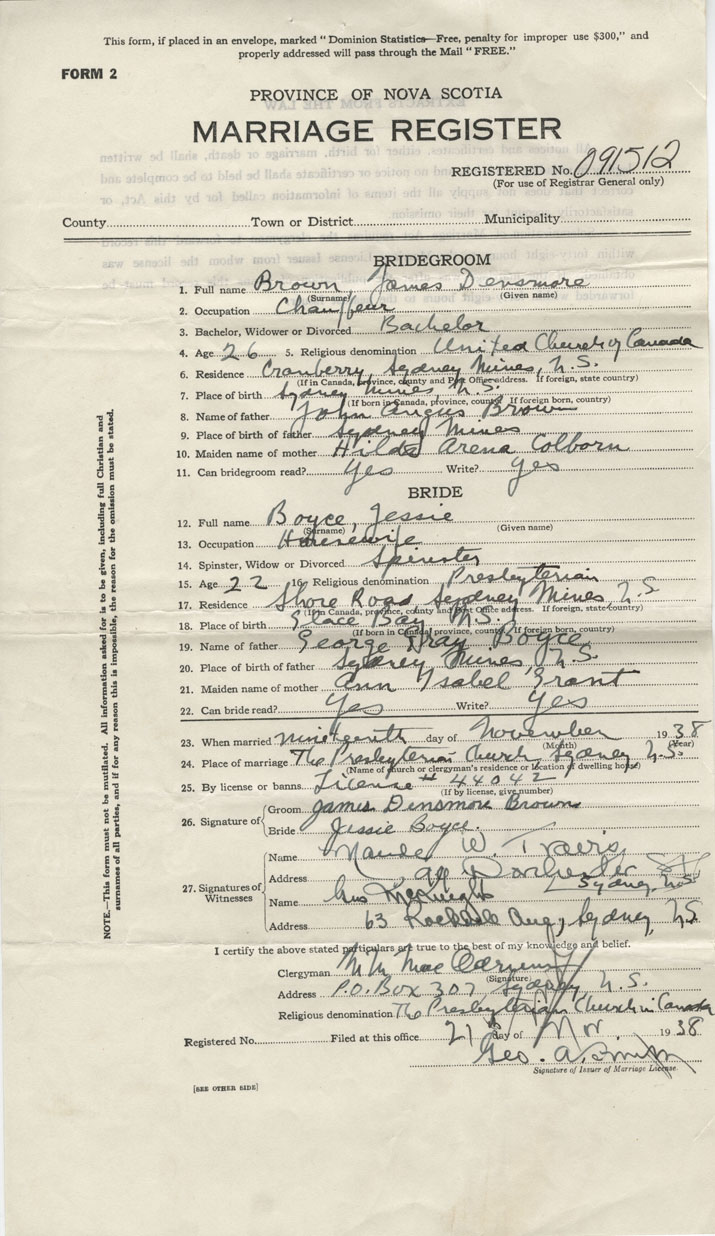 This form, if placed in an envelope, marked "Dominion Statistics—Free, penalty for improper use $300," and
properly addressed will pass through the Mail "FREE."
FORM 2
PROVINCE OF NOVA SCOTIA
MARRIAGE REGISTER
REGISTERED No. 091512
(For use of Registrar General only)
County Town or District Municipality
BRIDEGROOM
1. Full name Brown, James Densmore
(Surname) (Given name)
2. Occupation Chauffeur
3. Bachelor, Widower or Divorced Bachelor
4. Age 26 5. Religious denomination United Church of Canada
6. Residence Cranberry, Sydney Mines, N.S.
(If in Canada, province, county and Post Office address. If foreign, state country)
7. Place of birth Sydney Mines N.S.
(If born in Canada, province, county. If foreign born, country)
8. Name of father John Angus Brown
9. Place of birth of father Sydney Mines
10. Maiden name of mother Hilda Arena Colborn
11. Can bridegroom read? Yes Write? Yes
BRIDE
12. Full name Boyce, Jessie
(Surname) (Given name)
13. Occupation Housewife
14. Spinster, Widow or Divorced Spinster
15. Age 22 16. Religious denomination Presbyterian
17. Residence Shore Road, Sydney Mines N.S
(If in Canada, province, county and Post Office address. If foreign, state country)
18. Place of birth Glace Bay N.S.
(If born in Canada, province, county. If foreign born, country)
19. Name of father George Gray Boyce
20. Place of birth of father Sydney Mines, N.S.
21. Maiden name of mother Ann Isabel Grant
22. Can bride read? Yes Write? Yes
23. When married nineteenth day of November 1938
(Month) (Year)
24. Place of marriage The Presbyterian Church, Sydney N.S.
(Name of church or clergyman's residence or location of dwelling house)
25. By license or banns License # 44042
(If by license, give number)
26. Signature of Groom James Densmore Brown
Bride Jessie Boyce.
27. Signatures of Witnesses
Name Maude W. Travis
Address Dorchester St
Sydney, N.S.
Name McKnight
Address 63 Rockdale Ave, Sydney, N.S
I certify the above stated particulars are true to the best of my knowledge and belief.
Clergyman
(Signature)
Address P.O. Box 307 Sydney N.S.
Religious denomination The Presbyterian Church in Canada
Registered No. Filed at this office 21 day of Nov. 1938
Geo. A. Smith
Signature of Issuer of Marriage License.
[SEE OTHER SIDE]
NOTE.—This form must not be mutilated. All information asked for is to be given, including full Christian and
surnames of all parties, and if for any reason this is impossible, the reason for the omission must be stated.